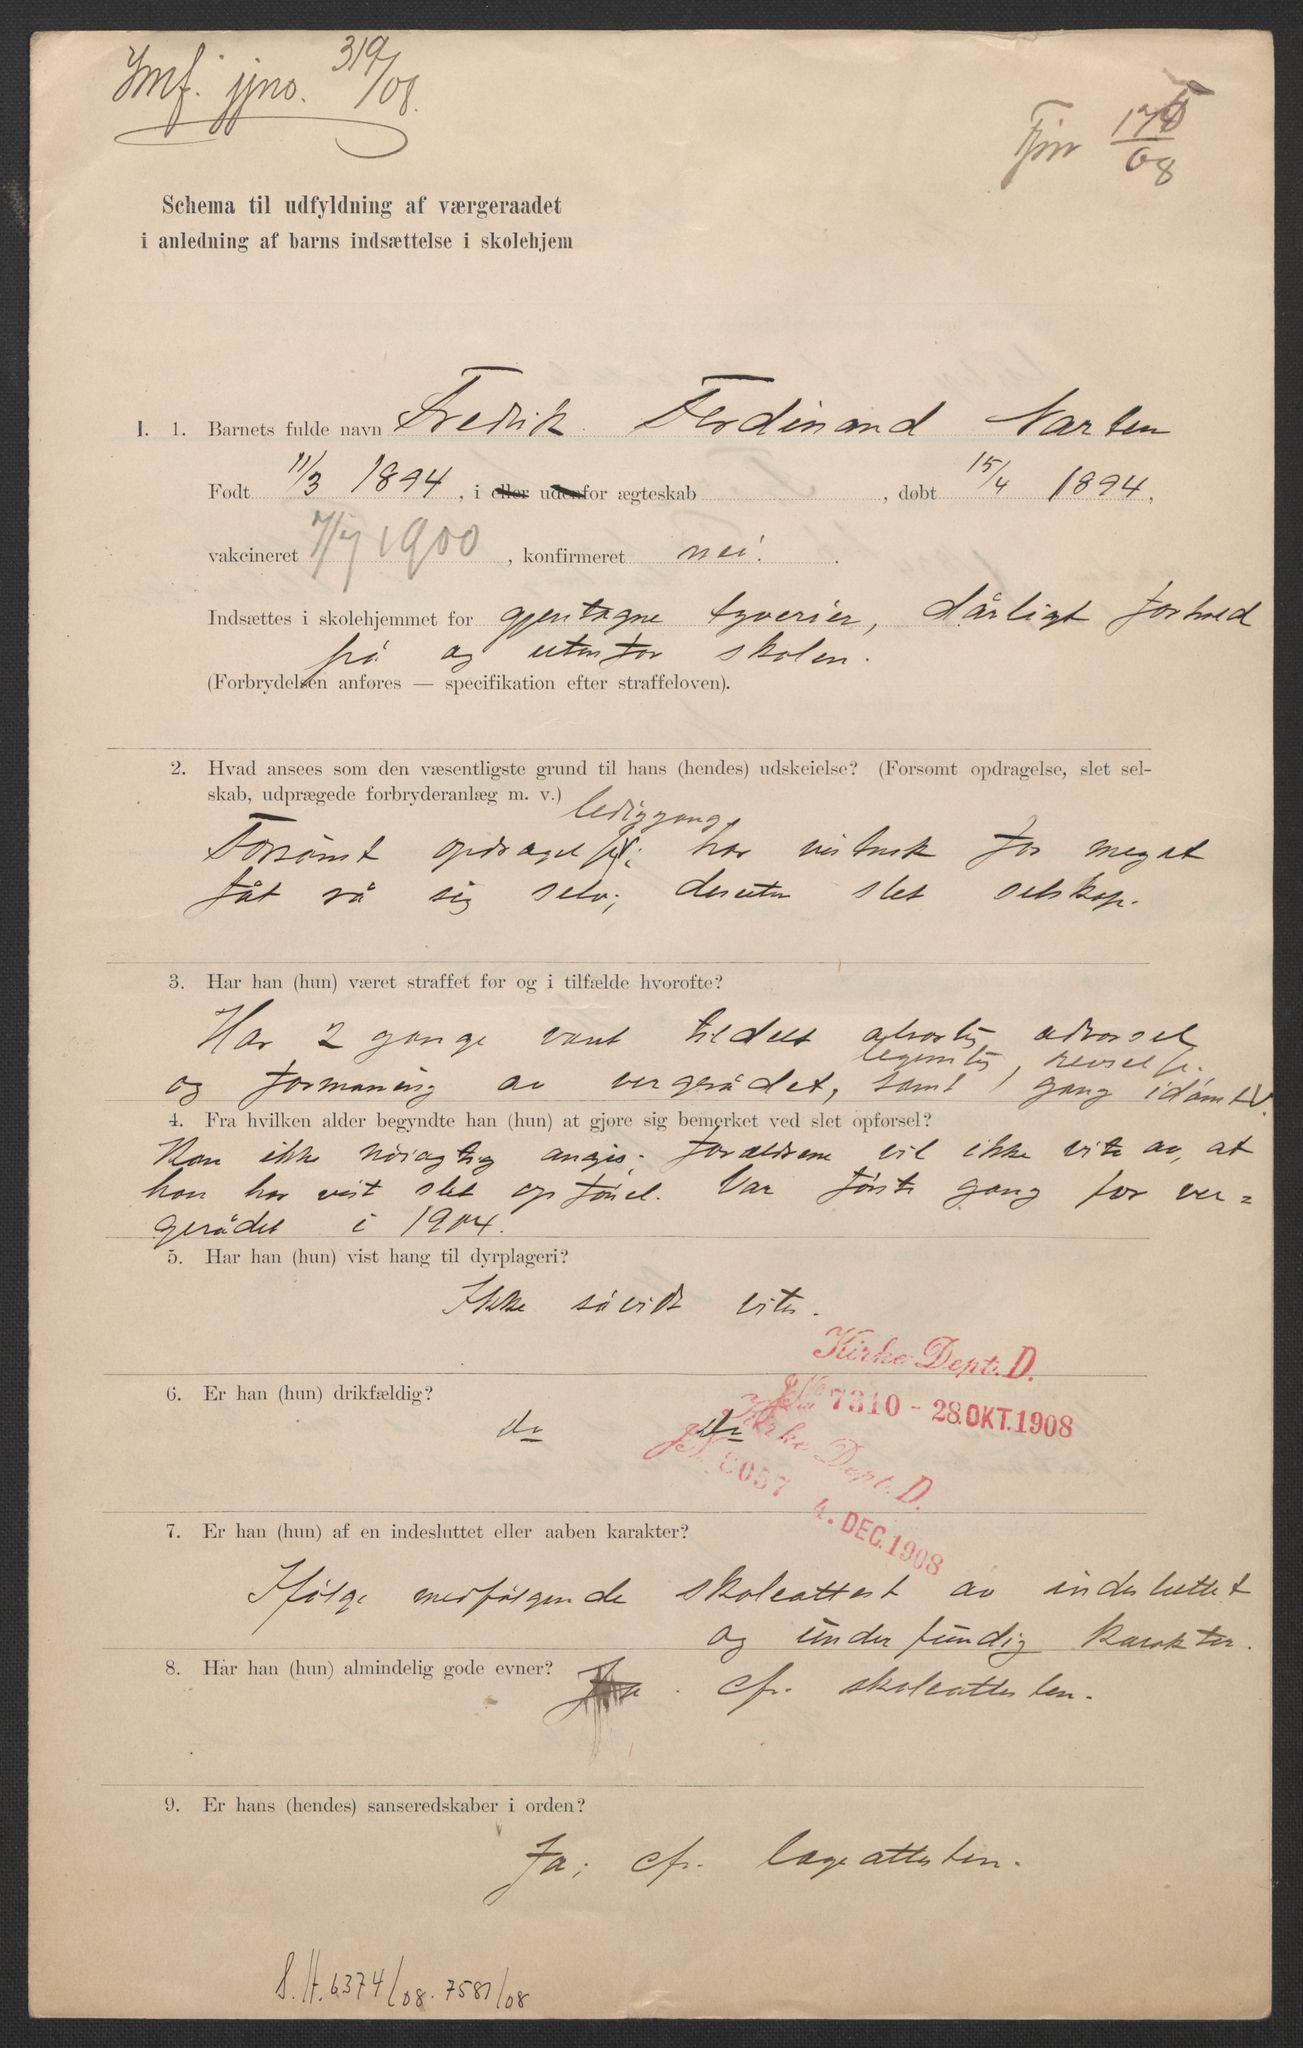 Jmf. jjno. 319/08.
Fjnr 178/08
Schema til udfyldning af værgeraadet
i anledning af barns indsættelse i skolehjem
I. 1. Barnets fulde navn Fredrik Ferdinand Narten
Født 11/3 1894, i eller udenfor ægteskab, døbt 15/4 1894.
vakcineret 1900, konfirmeret nei.
Indsættes i skolehjemmet for gjentagne tyverier, dårligt forhold
på og utenfor skolen.
(Forbrydelsen anføres — specifikation efter straffeloven).
2. Hvad ansees som den væsentligste grund til hans (hendes) udskeielse? (Forsømt opdragelse, slet sel-
skab, udprægede forbryderanlæg m. v.)
lediggang,
Forsømt opdragelse; har vistnok for meget
fåt rå sig selv; desuten slet selskap.
3. Har han (hun) været straffet før og i tilfælde hvorofte?
Har 2 gange vært tildelt alvorlig advarsel
og formaning av vergerådet, samt 1 gang idømt
legemlig revselse.
4. Fra hvilken alder begyndte han (hun) at gjøre sig bemerket ved slet opførsel?
Kan ikke nöiagtig angis; forældrene vil ikke vite av, at
han har vist slet opførsel. Var første gang for ver=
gerådet i 1904.
5. Har han (hun) vist hang til dyrplageri?
Ikke såvidt vites.
Kirke Dept. D.
JNo 7310 - 28.OKT.1908
6. Er han (hun) drikfældig?
do do
Kirke Dept. D.
JN. 8057 4. DEC. 1908
7. Er han (hun) af en indesluttet eller aaben karakter?
Ifølge medfølgende skoleattest av indesluttet
og underfundig karakter.
8. Har han (hun) almindelig gode evner? Ja. cfr. skoleattesten.
9. Er hans (hendes) sanseredskaber i orden?
Ja; cfr. lægeattesten.
S.H. 6374/08. 7581/08